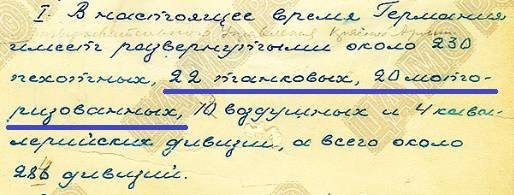 I. В настоящее время Германия
имеет развернутыми около 230
пехотных, 22 танковых, 20 мото-
ризованных, 10 воздушных и 4 кава-
лерийских дивизий, а всего около
286 дивизий.